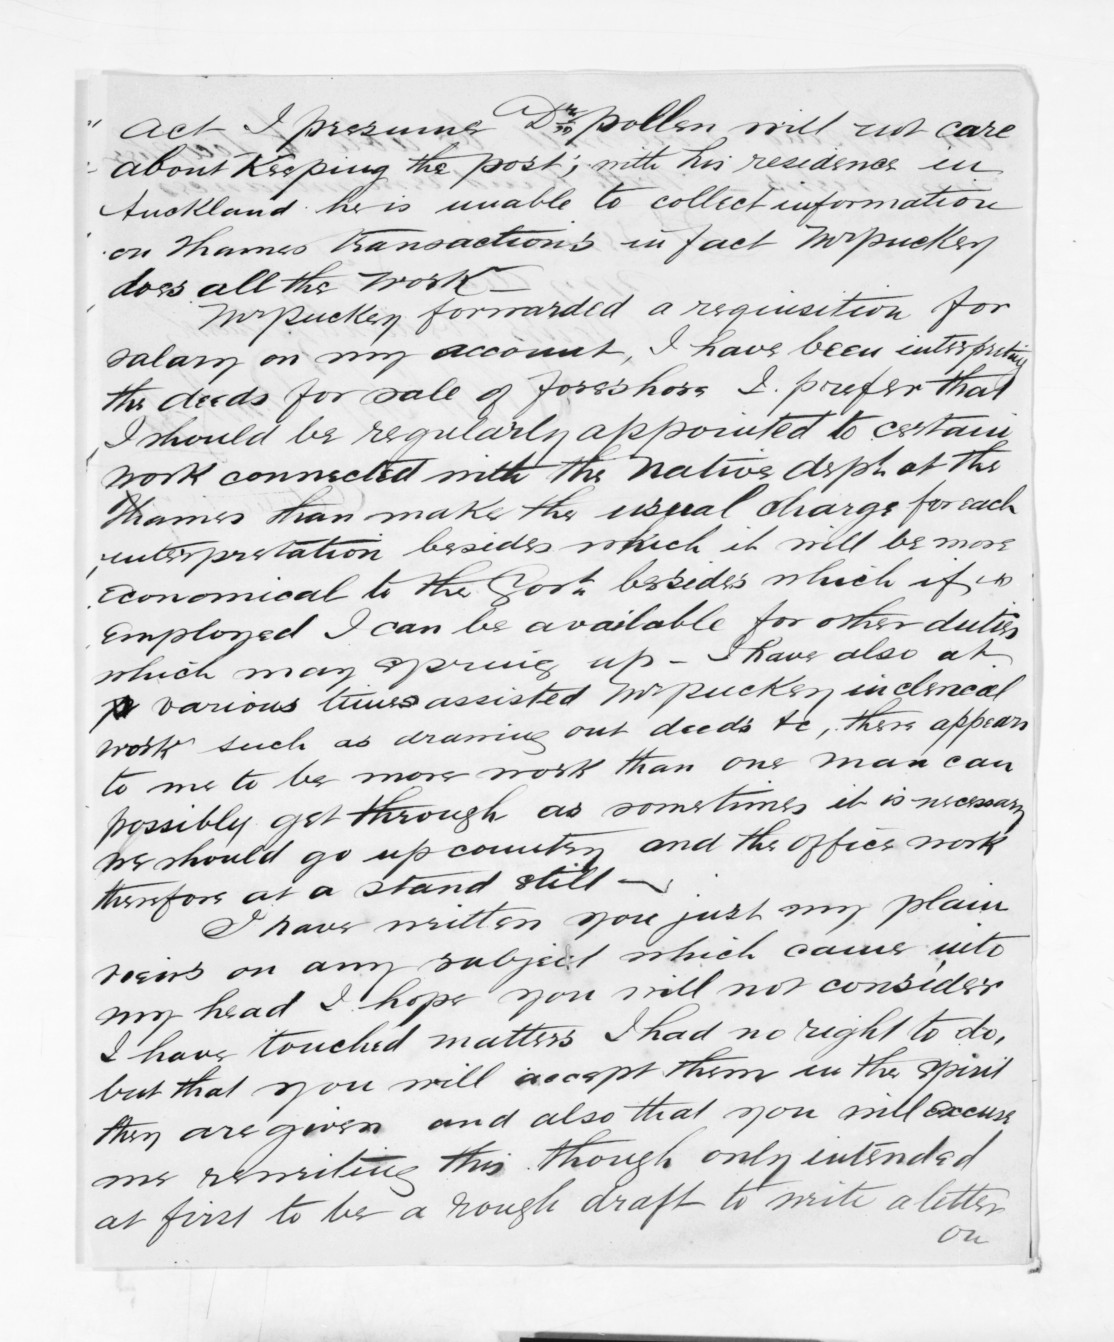 Act I presume Dr pollen will not care
about Keeping the post; with his residence in
Auckland he is unable to collect information
on Thames transactions in fact Mr puckey
does all the work —
Mr puckey forwarded a requisition for
salary on my account, I have been interpreting
the deeds for sale of foreshore I prefer that
I should be regularly appointed to certain
work connected with the Native dept. at the
Thames than make the usual charge for each
interpretation besides which it will be more
economical to the Govt. besides which if so
employed I can be available for other duties
which may spring up — I have also at
various times assisted Mr puckey in clerical
work such as drawing out deeds &c, there appears
to me to be more work than one man can
possibly get through as sometimes it is necessary
we should go up country and the office work
therefore at a stand still —
I have written you just my plain
views on any subject which came into
my head I hope you will not consider
I have touched matters I had no right to do,
but that you will accept them in the spirit
they are given and also that you will excuse
me rewriting this though only intended
at first to be a rough draft to write a letter
on